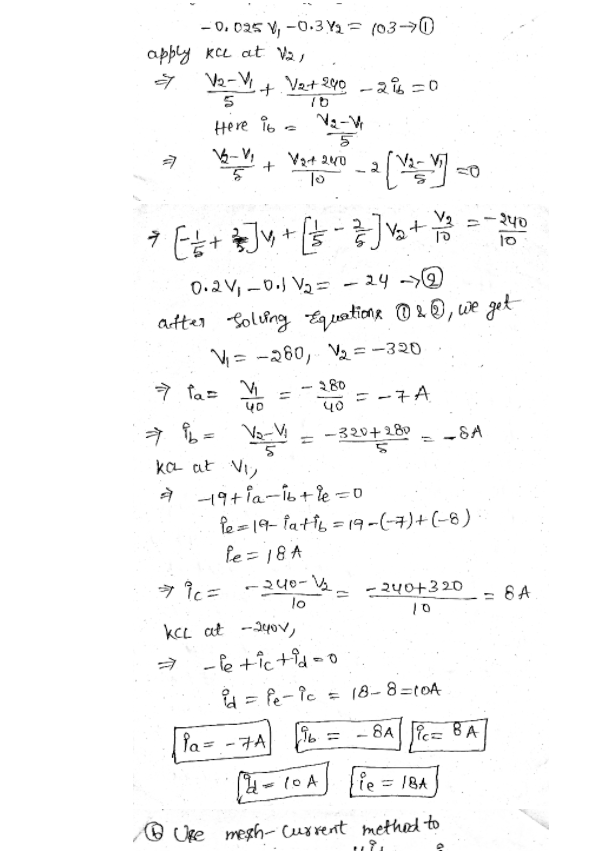 -0.025 V₁ -0.3 V₂ = 103 → ①
apply KCL at V₂,
⇒ (V₂-V₁)/5 + (V₂+240)/10 - 2i_b = 0
Here i_b = (V₂-V₁)/5
⇒ (V₂-V₁)/5 + (V₂+240)/10 - 2[(V₂-V₁)/5] = 0
⇒ [-1/5 + 2/5]V₁ + [1/5 - 2/5]V₂ + V₂/10 = -240/10
0.2V₁ - 0.1 V₂ = -24 → ②
after solving Equations ① & ②, we get
V₁ = -280, V₂ = -320
⇒ i_a = V₁/40 = -280/40 = -7 A
⇒ i_b = (V₂-V₁)/5 = (-320+280)/5 = -8A
KCL at V₁,
⇒ -19+i_a-i_b+i_e=0
i_e=19-i_a+i_b=19-(-7)+(-8)
i_e = 18 A
⇒ i_c = (-240-V₂)/10 = (-240+320)/10 = 8 A
KCL at -240V,
⇒ -i_e+i_c+i_d=0
i_d = i_e-i_c = 18-8=10A
i_a = -7A i_b = -8A i_c = 8 A
i_d = 10 A i_e = 18A
ⓑ Use mesh-current method to